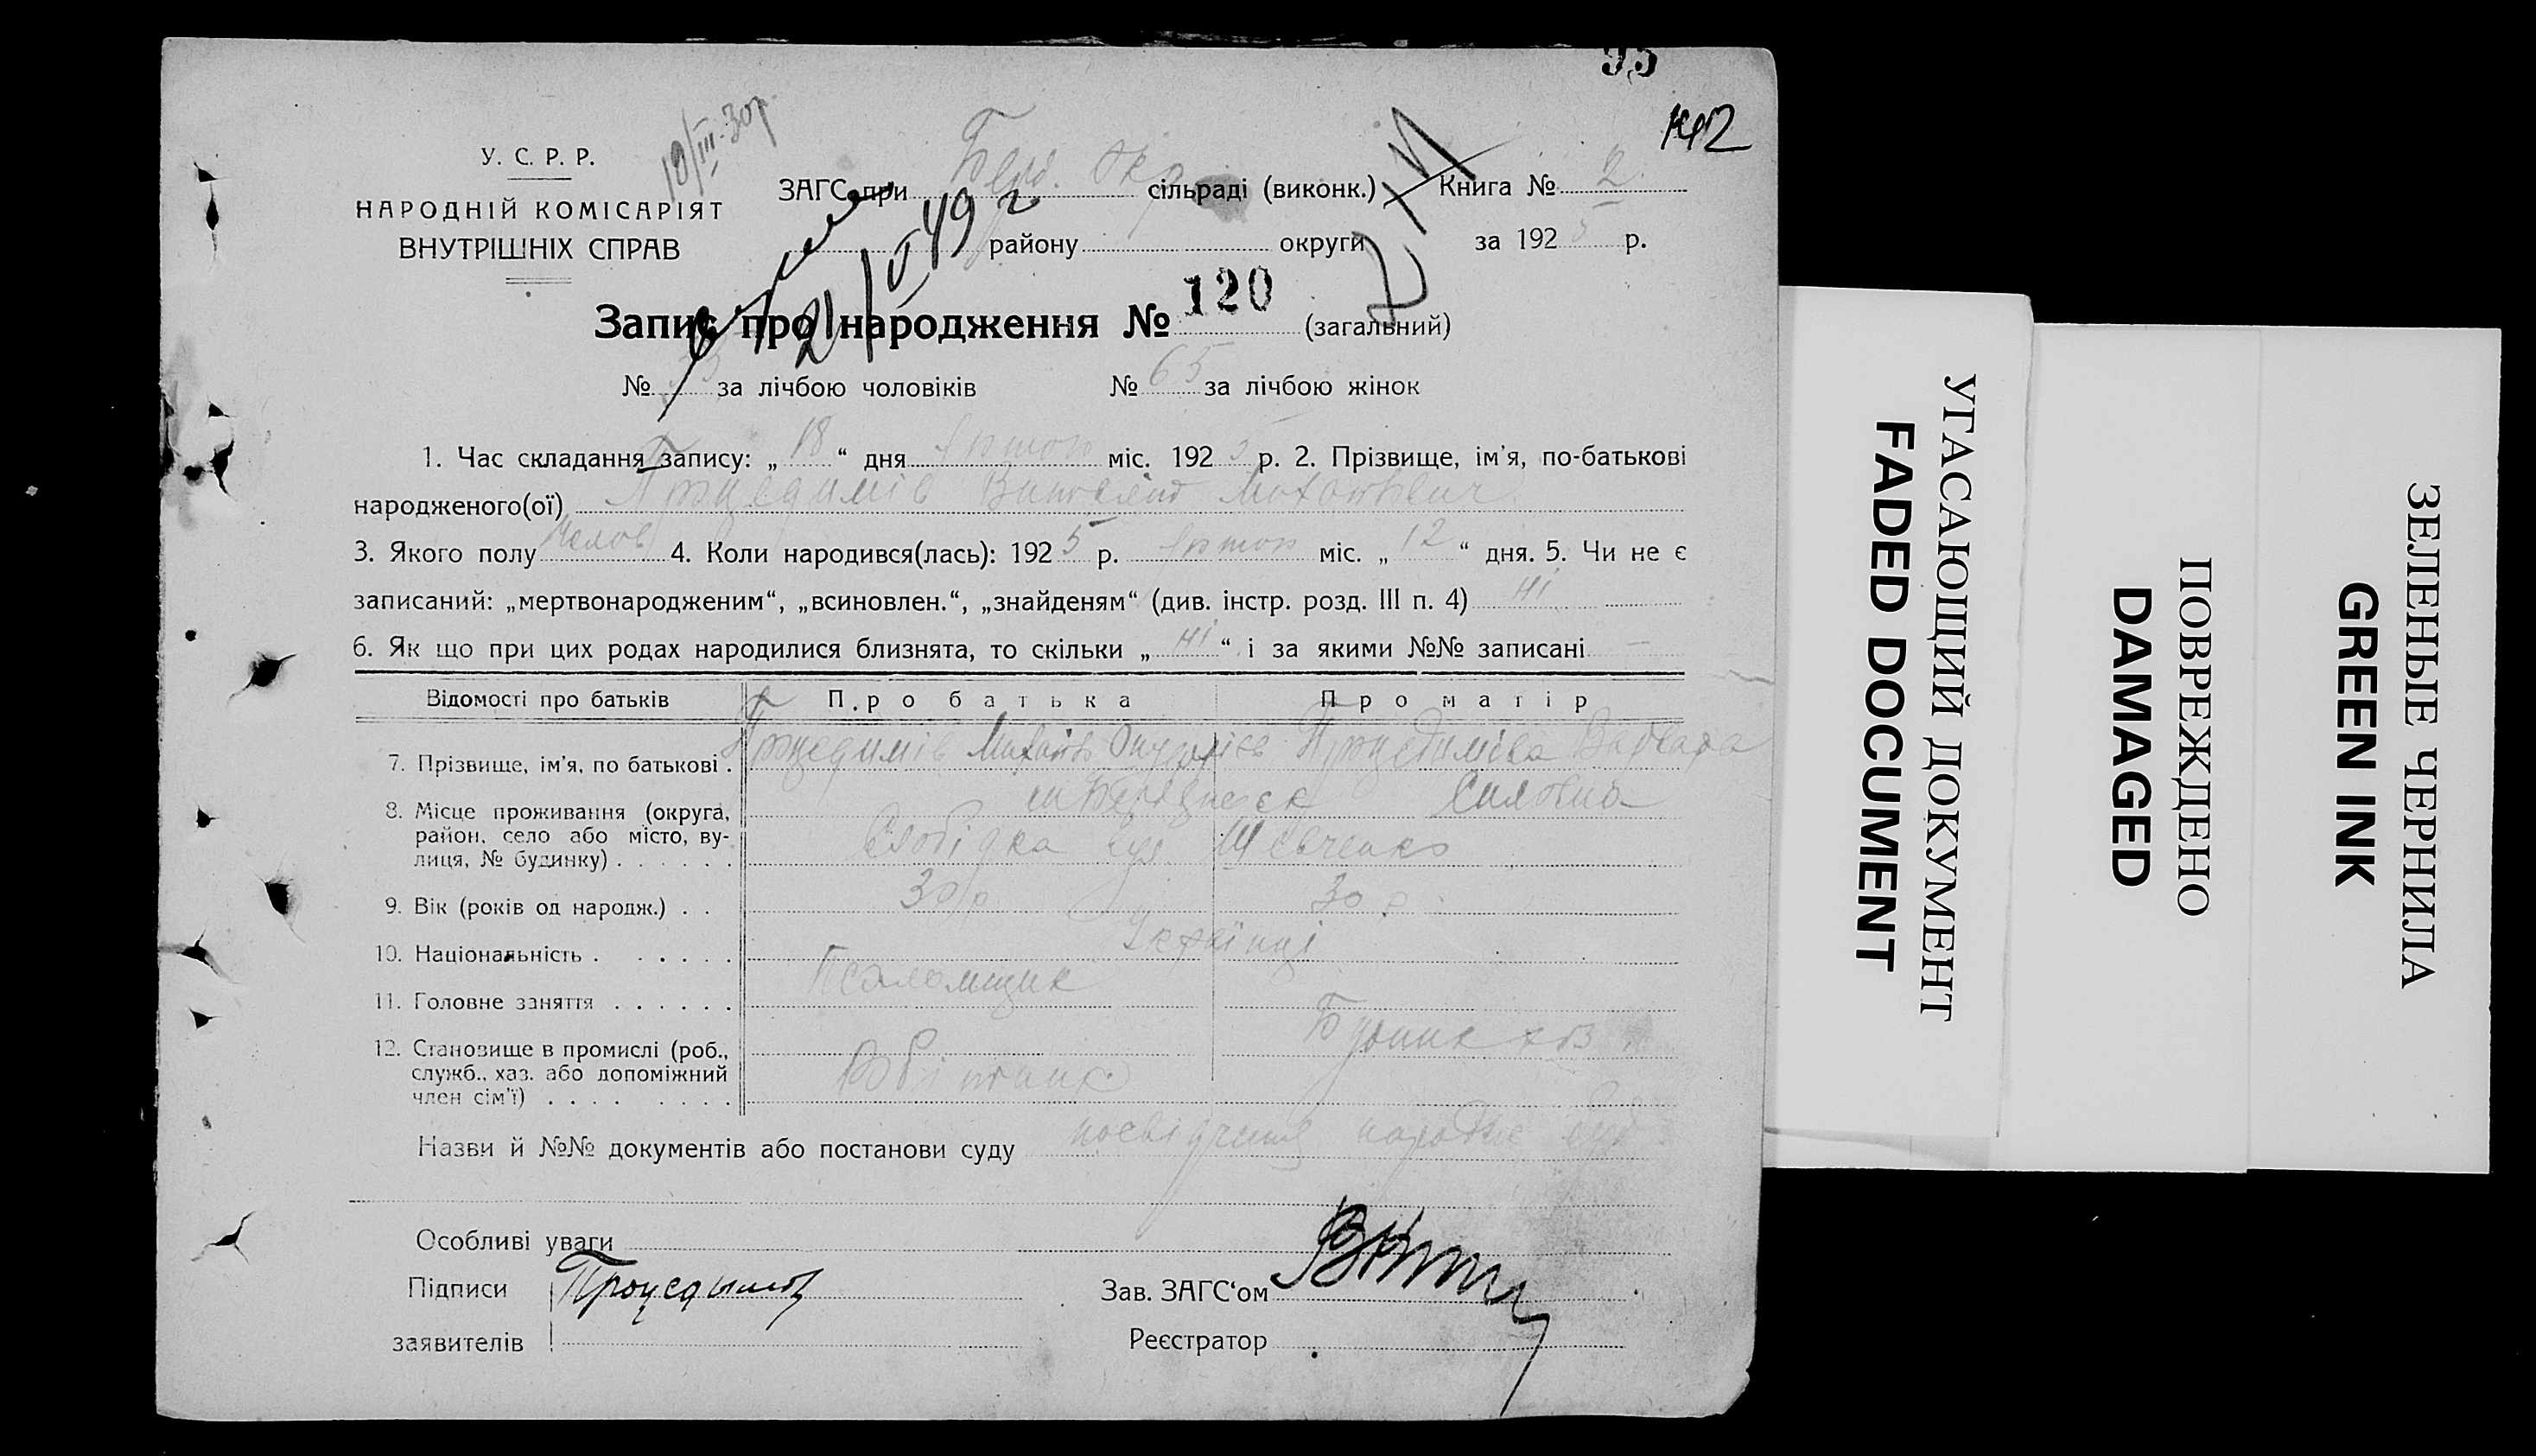 93
142
18/III-30р.
У. С. Р. Р.
НАРОДНІЙ КОМІСАРІЯТ
ВНУТРІШНІХ СПРАВ
ЗАГС при Берд. Окр сільраді (виконк.) Книга № 2
району округи за 1925 р.
21/VI 49 г
Запис про народження № 120 (загальний)
№ за лічбою чоловіків № 65 за лічбою жінок
1. Час складання запису: „ 18 “ дня міс. 1925 р. 2. Прізвище, ім’я, по-батькові
народженого(ої) Процедимів Виталій
3. Якого полу Челов 4. Коли народився(лась): 1925 р. міс. „ 12 “ дня. 5. Чи не є
записаний: „мертвонародженим“, „всиновлен.“, „знайденям“ (див. інстр. розд. III п. 4) ні
6. Як що при цих родах народилися близнята, то скільки „ ні “ і за якими №№ записані —
Відомості про батьків Про батька Про матір
7. Прізвище, ім’я, по батькові . Процедимів Процедиміва Варвара
Силовна
8. Місце проживання (округа,
район, село або місто, ву-
лиця, № будинку) . . . . . . Слобідка вул Шевченко
9. Вік (років од народж.) . . 30 р 30 р
10. Національність . . . . . . Українці
11. Головне заняття . . . . . . Псаломщик
12. Становище в промислі (роб.,
служб., хаз. або допоміжний
член сім’ї) . . . . . . . . Робітник
Назви й №№ документів або постанови суду посвідчення
Особливі уваги
Підписи Процедымов Зав. ЗАГС‘ом
заявителів Реєстратор
УГАСАЮЩИЙ ДОКУМЕНТ
FADED DOCUMENT
ПОВРЕЖДЕНО
DAMAGED
ЗЕЛЕНЫЕ ЧЕРНИЛА
GREEN INK